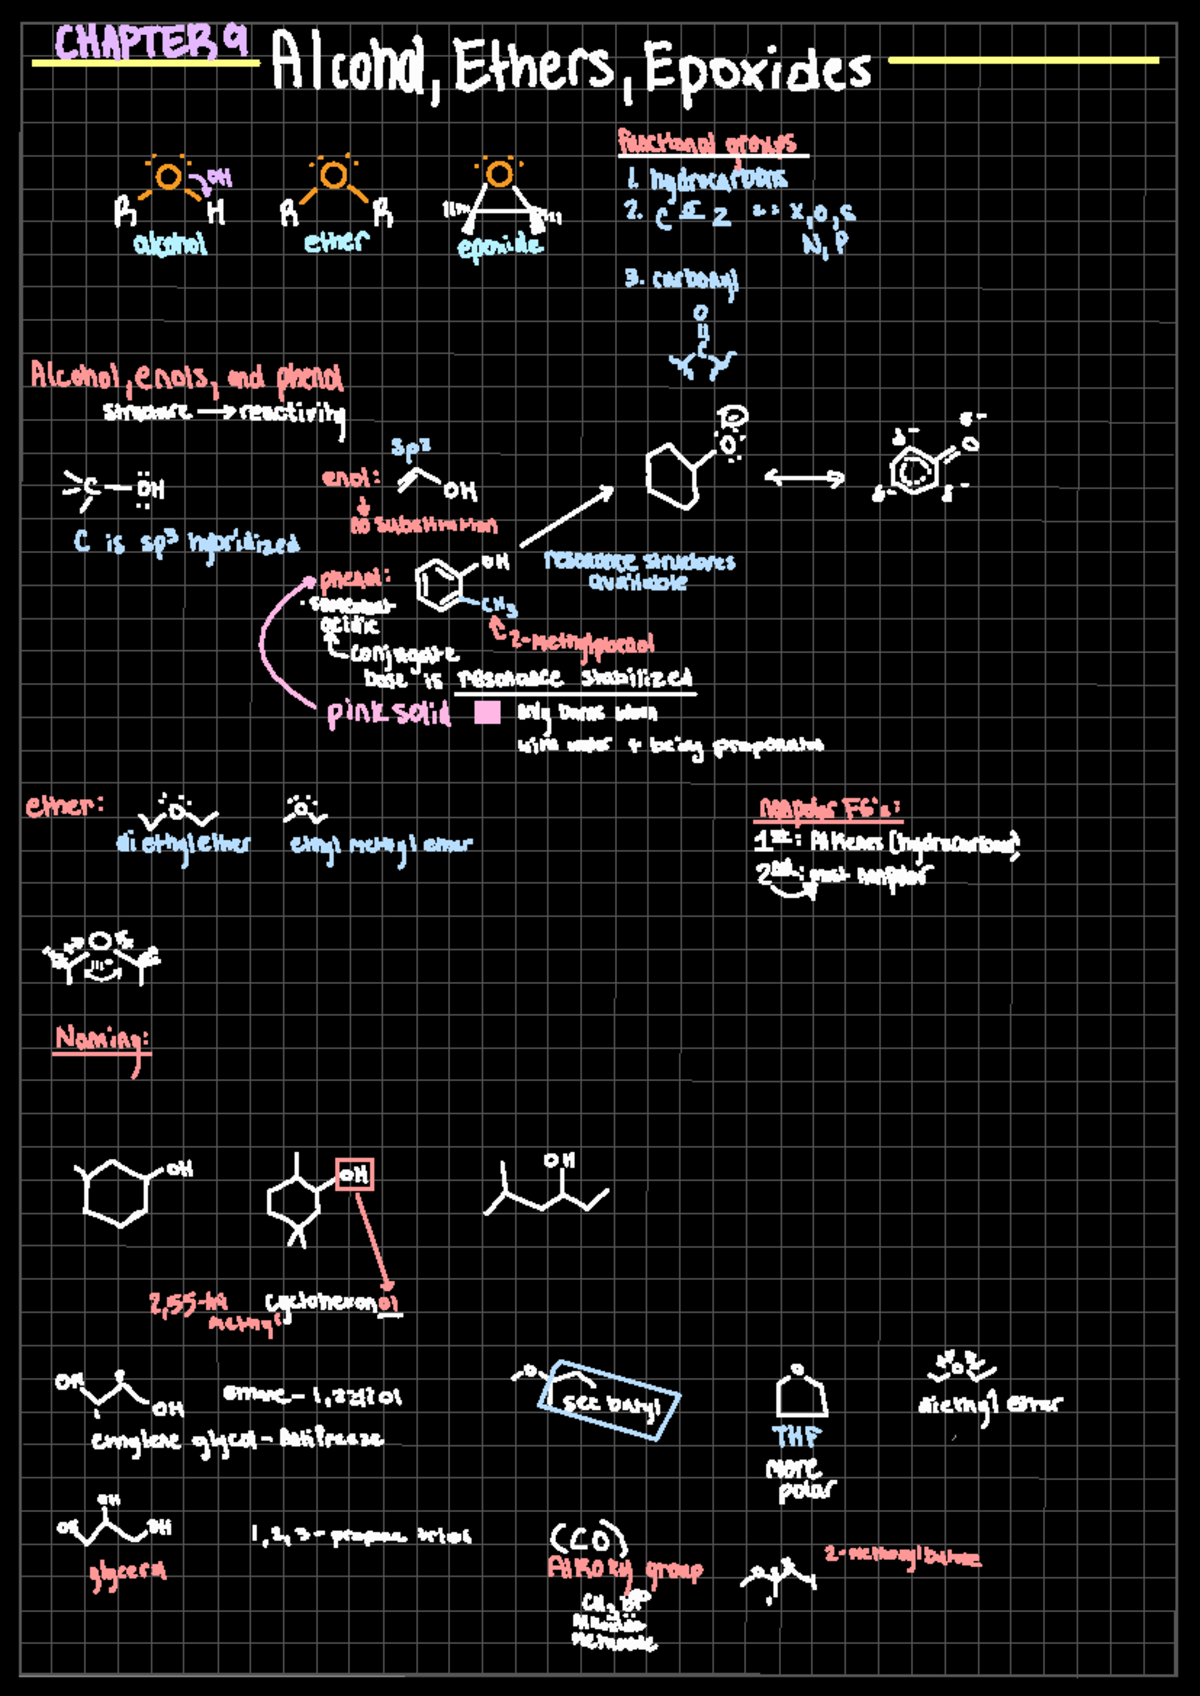 CHAPTER 9
Alcohol, Ethers, Epoxides
functional groups
1. hydrocarbons
2. C — Z X, O, S
N, P
3. carbonyl
O
C
O OH
R H
alcohol
O
R R
ether
O
epoxide
Alcohol, enols, and phenol
structure → reactivity
C — OH
C is sp³ hybridized
sp²
enol:
OH
no substitution
O
δ-
δ- O
δ- δ-
resonance structures
available
phenol:
OH
CH3
2-methylphenol
· somewhat
acidic
conjugate
base is resonance stabilized
pink solid
only when
water + being
ether:
O
diethyl ether
O
ethyl methyl ether
nonpolar FG's:
1st: Alkenes (hydrocarbons)
2nd: most nonpolar
O
Naming:
OH
OH
OH
2,55-tri
methyl
cyclohexanol
OH
OH
1,2
ethylene glycol - Antifreeze
O
sec butyl
O
THF
more
polar
O
diethyl ether
OH
OH
glycerol
1,2,3 - propane triol
Alkoxy group
CH3
O